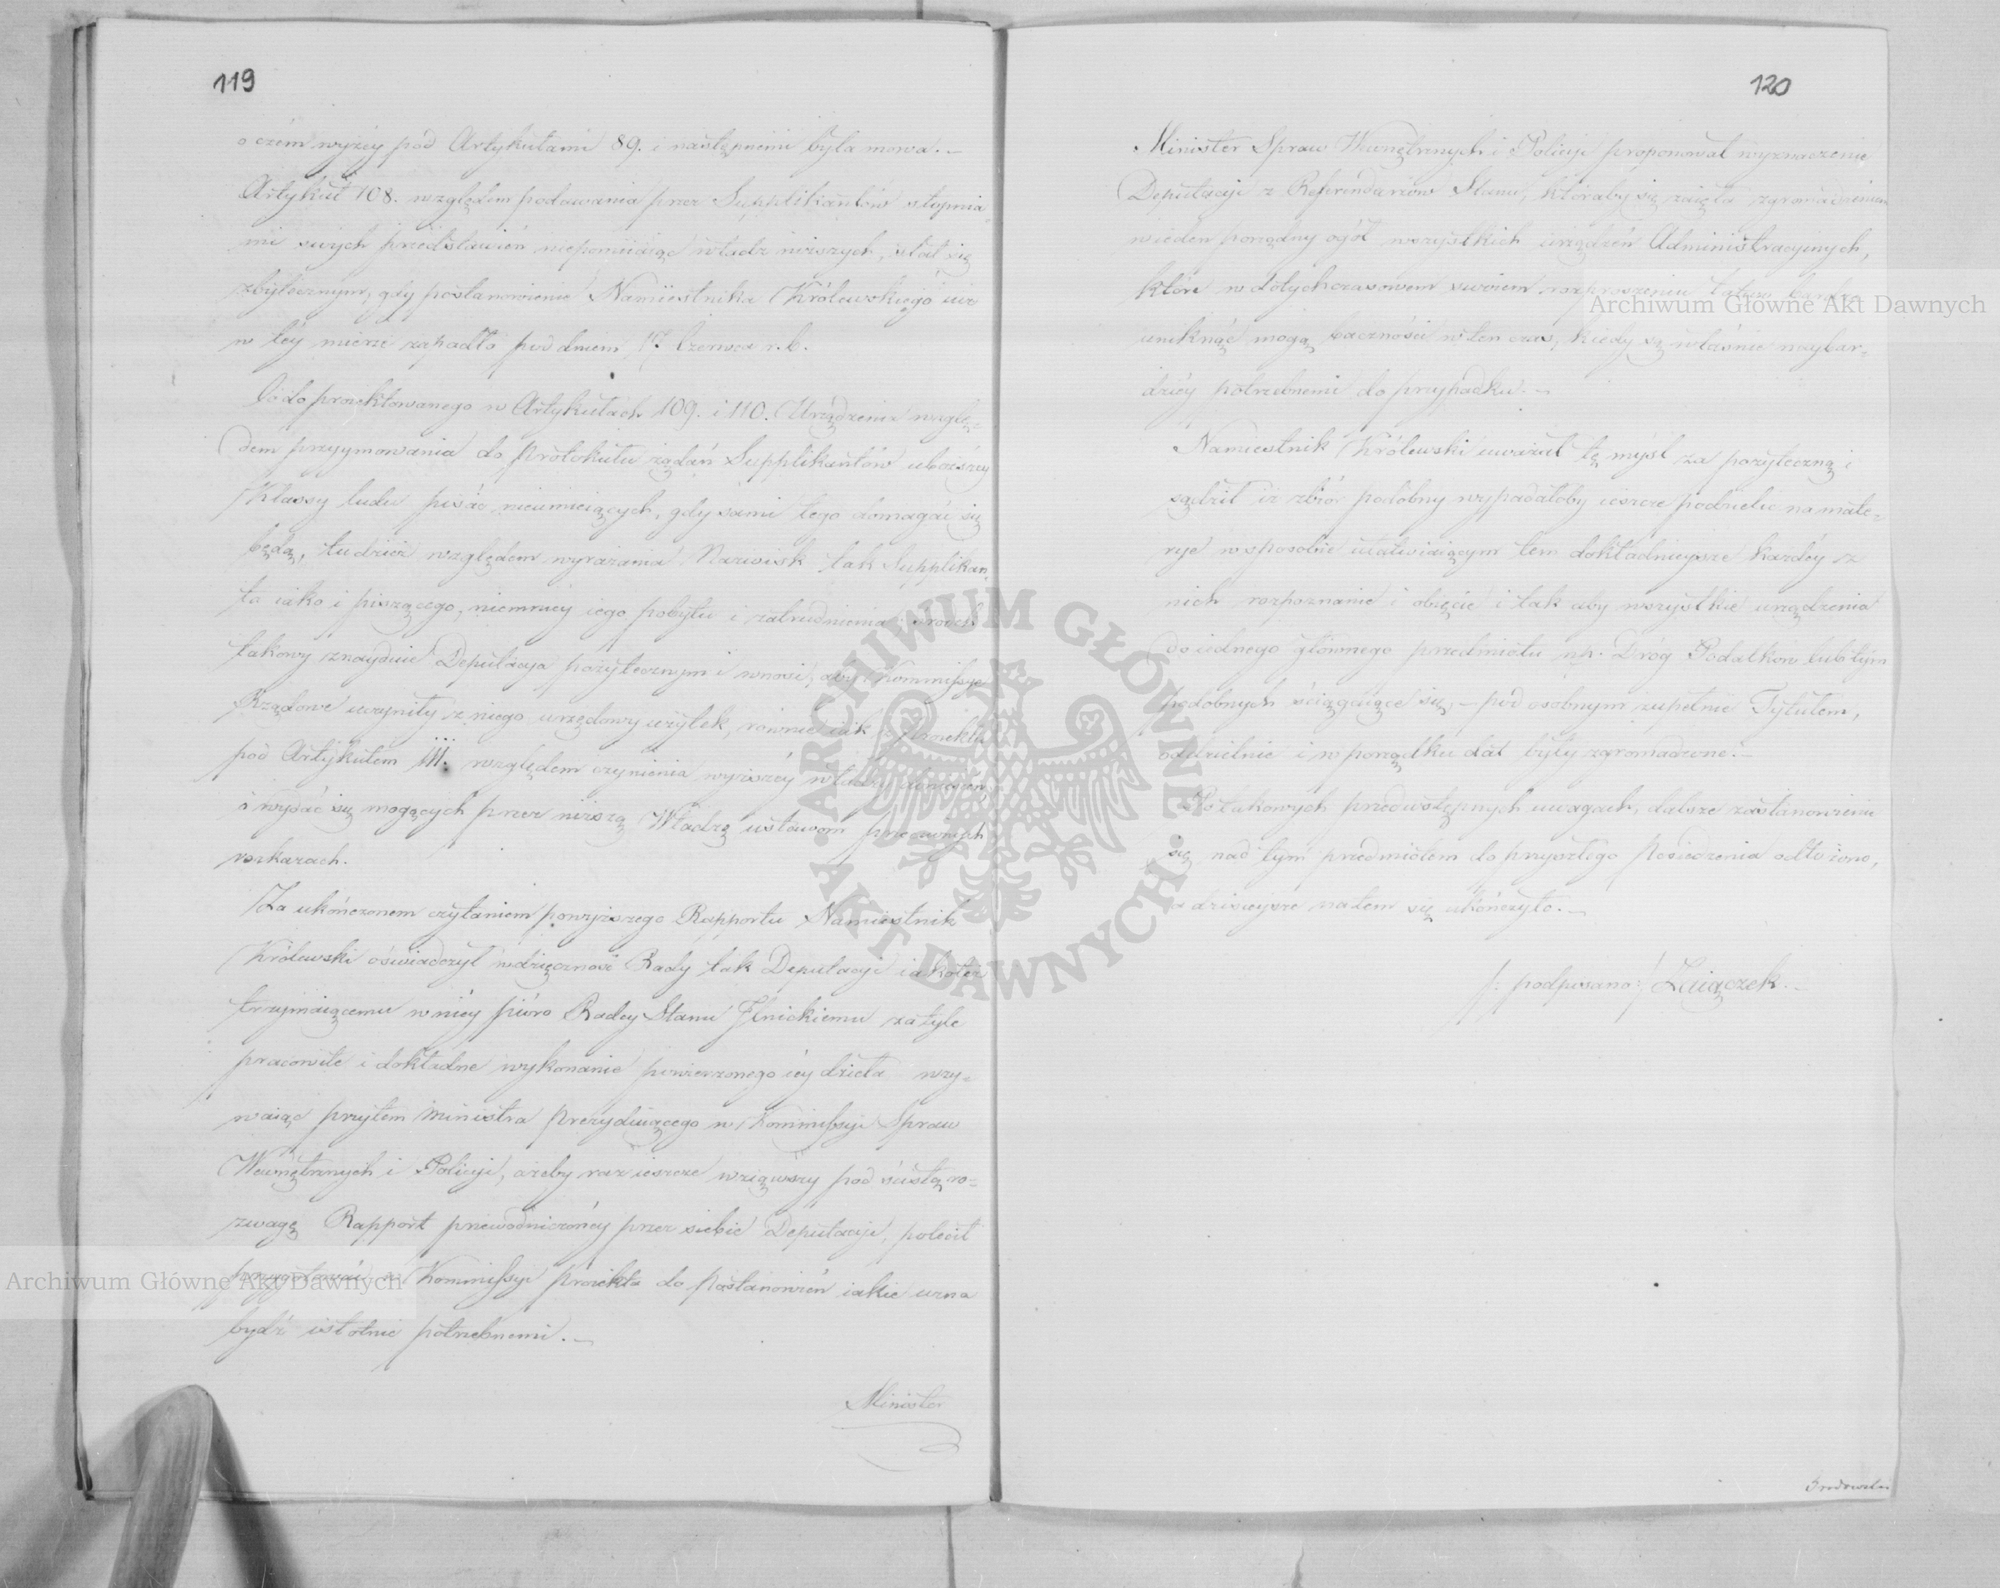 119
o czém wyżéy pod Artykułami 89. i następnemi była mowa. —
Artykuł 108. względem podawania przez Supplikantów stopnia-
mi swych przedstawień niepomiiaiąc władz niższych, stał się
zbytecznym, gdy postanowienie Namiestnika Królewskiego iuż
w téy mierze zapadło pod dniem Czerwca r. b.
Co do proiektowanego w Artykułach 109. i 110. Urządzenia wzglę-
dem przyymowania do Protokułu żądań Supplikantów uboższéy
Klassy ludu pisać nieumieiących, gdy sami tego domagać się
będą, tudzież względem wyrażania Nazwisk tak Supplikan-
ta iako i piszącego, niemniéy iego pobytu i zatrudnienia środek
takowy znayduie Deputacya pożytecznym i wnosi, aby Kommissye
Rządowe uczyniły z niego urzędowy użytek, równie iak z proiektu
pod Artykułem 111. względem czynienia wyższéy władzy doniesień
o wydać się mogących przez niższą Władzę ustawom przeciwnych
rozkazach.
Za ukończonem czytaniem powyższego Rapportu Namiestnik
Królewski oświadczył wdzięczność Rady tak Deputacyi iakoteż
trzymaiącemu w niéy pióro Radcy Stanu Ilnickiemu za tyle
pracowite i dokładne wykonanie powierzonego iéy dzieła wzy-
waiąc przytem Ministra Prezyduiącego w Kommissyi Spraw
Wewnętrznych i Policyi, ażeby raz ieszcze wziąwszy pod ścisłą ro-
zwagę Rapport przewodniczonéy przez siebie Deputacyi, polecił
przygotować w Kommissyi proiekta do postanowień iakie uzna
bydź istotnie potrzebnemi. —
Minister
120
Minister Spraw Wewnętrznych i Policyi proponował wyznaczenie
Deputacyi z Referendarzów Stanu, któraby się zaięła zgromadzeniem
w ieden porządny ogół wszystkich urządzeń Administracyinych,
które w dotychczasowem swoiem rozproszeniu łatwo
uniknąć mogą baczności w ten czas, kiedy są właśnie naybar-
dziéy potrzebnemi do przypadku. —
Namiestnik Królewski uważał tę myśl za pożyteczną i
sądził iż zbiór podobny wypadałoby ieszcze podzielić na mate-
rye w sposobie ułatwiaiącym tem dokładnieysze każdéy z
nich rozpoznanie i obięcie i tak aby wszystkie urządzenia
do iednego głównego przedmiotu np. Dróg Podatków lub tym
podobnych ściągaiące się, — pod osobnym zupełnie Tytułem,
oddzielnie i w porządku dat były zgromadzone. —
Po takowych przedwstępnych uwagach, dalsze zastanowienie
się nad tym przedmiotem do przyszłego Posiedzenia odłożono,
a dzisieysze na tem się ukończyło. —
/: podpisano :/ Zaiączek. —
Archiwum Główne Akt Dawnych
Archiwum Główne Akt Dawnych
ARCHIWUM GŁÓWNE
AKT DAWNYCH